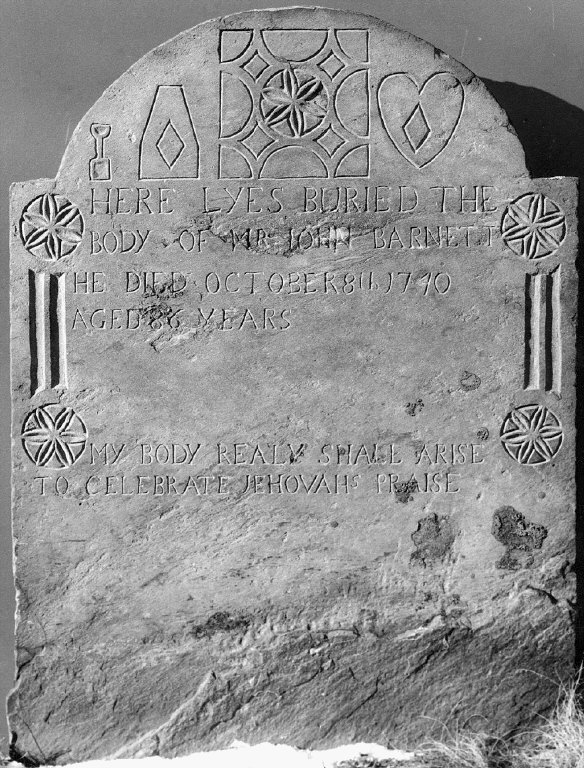 HERE LYES BURIED THE
BODY OF MR JOHN BARNETT
HE DIED OCTOBER 8th 1740
AGED 86 YEARS
MY BODY REALY SHALL ARISE
TO CELEBRATE JEHOVAHS PRAISE